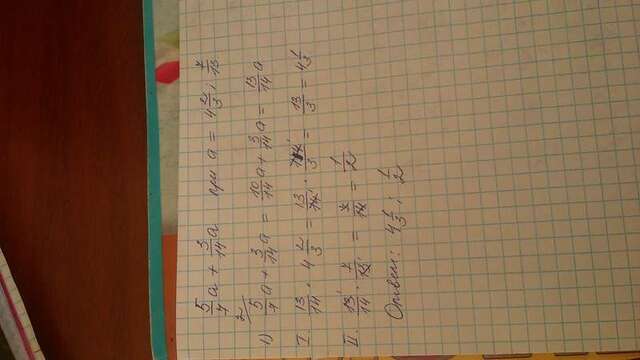 5/7 a + 3/14 a при a = 4 2/3; 7/13
2
1) 5/7 a + 3/14 a = 10/14 a + 3/14 a = 13/14 a
I. 13/14 · 4 2/3 = 13/14 · 14/3 = 13/3 = 4 1/3
II. 13/14 · 7/13 = 7/14 = 1/2
Ответ: 4 1/3; 1/2